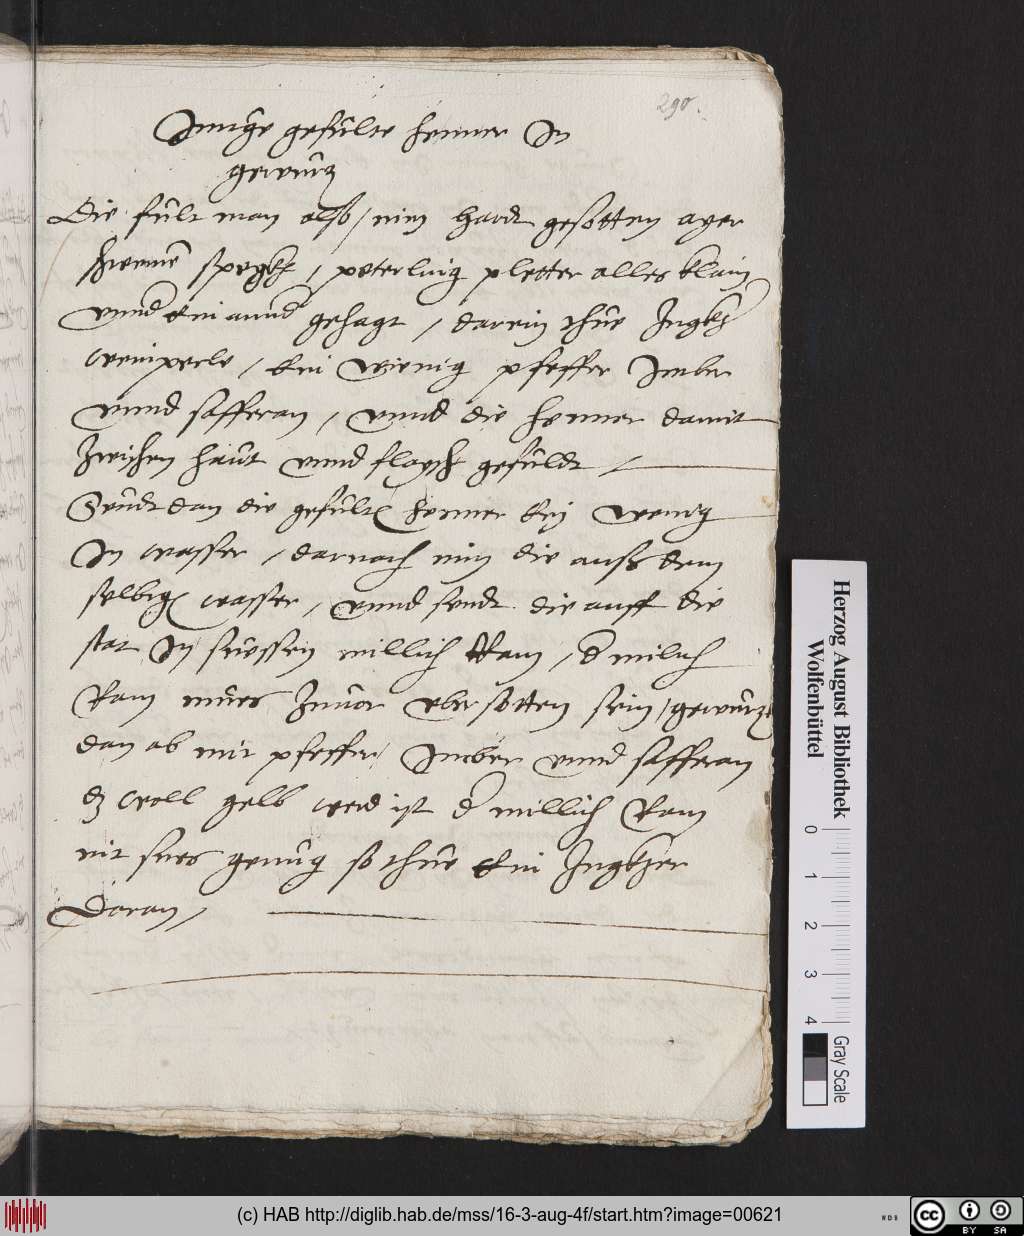 290.
Junnge gefülte henner In
gewürtz
Die fült man also / nim hardt gesotten ayer
schweine speckh / peterlnig pletter alles klain
vnnd ein annd gehagt / darein thue
weinperle / ein wienig pfeffer Imber
vnnd safferan / vnnd die henner damit
Zwischen haut vnnd flaysch gefüldt /
Seudt dan die gefülte henner ein wenig
In wasser / darnach nim die auss dem
selbigen wasser / vnnd seudt die auff die
stat In süessen millich Ram / d milich
Ram mues Zuuor vber sotten sein / gewürz
dan ab mit pfeffer Imber vnnd safferan
dz woll gelb werd ist d millich Ram
nit sues genug so thue ein Zugkher
Daran /
Herzog August Bibliothek
Wolfenbüttel
0 1 2 3 4
Gray Scale
(c) HAB http://diglib.hab.de/mss/16-3-aug-4f/start.htm?image=00621
WDB
cc
BY SA